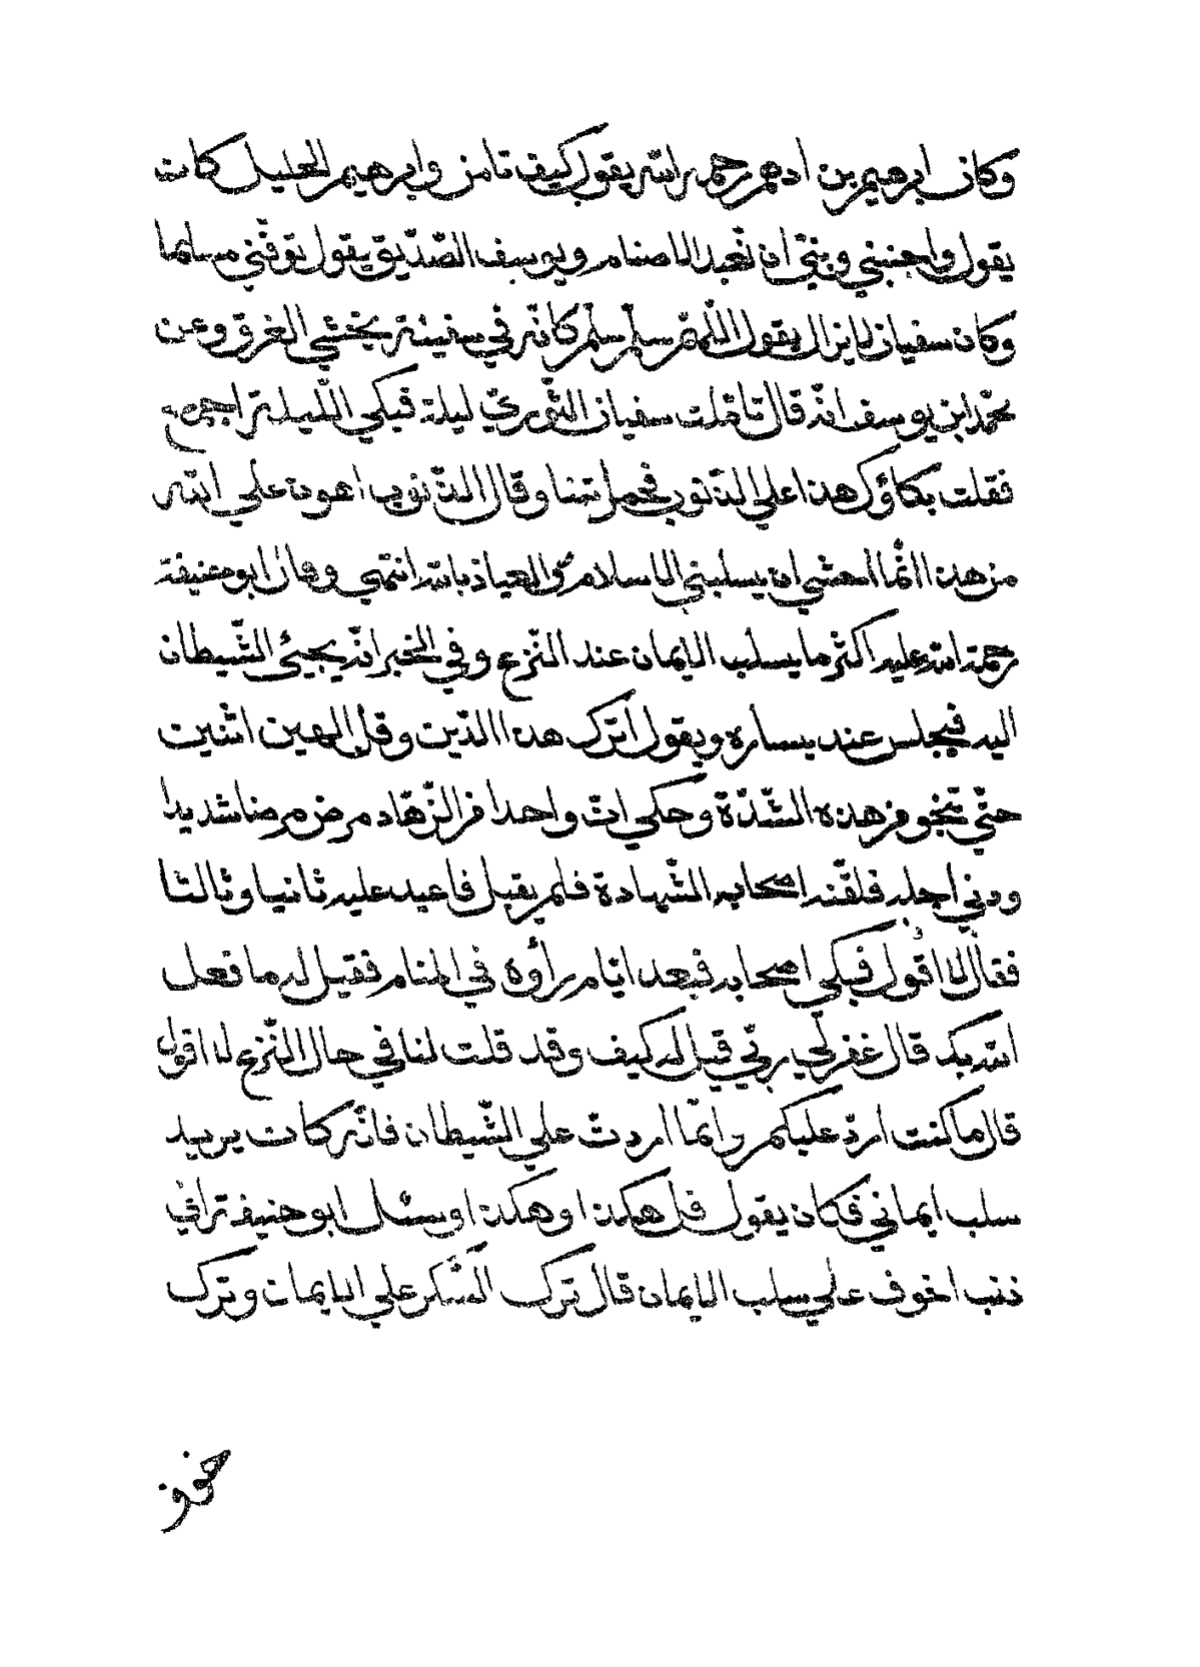 وكان ابرهيم بن ادهم رحمه الله يقول كيف تامن وابرهيم الخليل كان
يقول واجنبني وبنيّ ان نّعبد الاصنام ويوسف الصّديق يقول توفّني مسلما
وكان سفيان لايزال يقول اللّهمّ سلّم سلّم كانّه في سفينة يخشي الغرق وعن
محّمد ابن يوسف انه قال تامّلت سفيان الثّوريّ ليلة فبكي اللّيلة اجمع
فقلت بكاؤك هذا علي الذّنوب فحمل تبنا وقال الذّنوب اهون علي الله
من هذا انّما أخشي ان يسلبني الاسلام والعياذ بالله انتهي وقال ابوحنيفة
رحمة الله عليه اكثر ما يسلب الايمان عند النّزع وفي الخبر انّه يجيئ الشّيطان
اليه فيجلس عند يساره ويقول اترك هذا الدّين وقل الهين اثنين
حتّي تنجو من هذه الشّدّة وحكي انّ واحدا من الزّهّاد مرض مرضا شديدا
ودني اجله فلقّنه اصحابه الشّهادة فلم يقبل فاعيد عليه ثانيا وثالثا
فقال لا اقول فبكي اصحابه فبعد ايّام رأوه في المنام فقيل له ما فعل
الله بك قال غفر لي ربّي قيل له كيف وقد قلت لنا في حال النّزع لا اقول
قال ما كنت اردّ عليكم وانّما اردتّ علي الشّيطان فانّه كان يريد
سلب ايماني فكان يقول قل هكذا وهكذا وسئل ابوحنيفه ترافي
ذنب اخوف علي سلب الايمان قال ترك الشّكر علي الايمان وترك
خوف